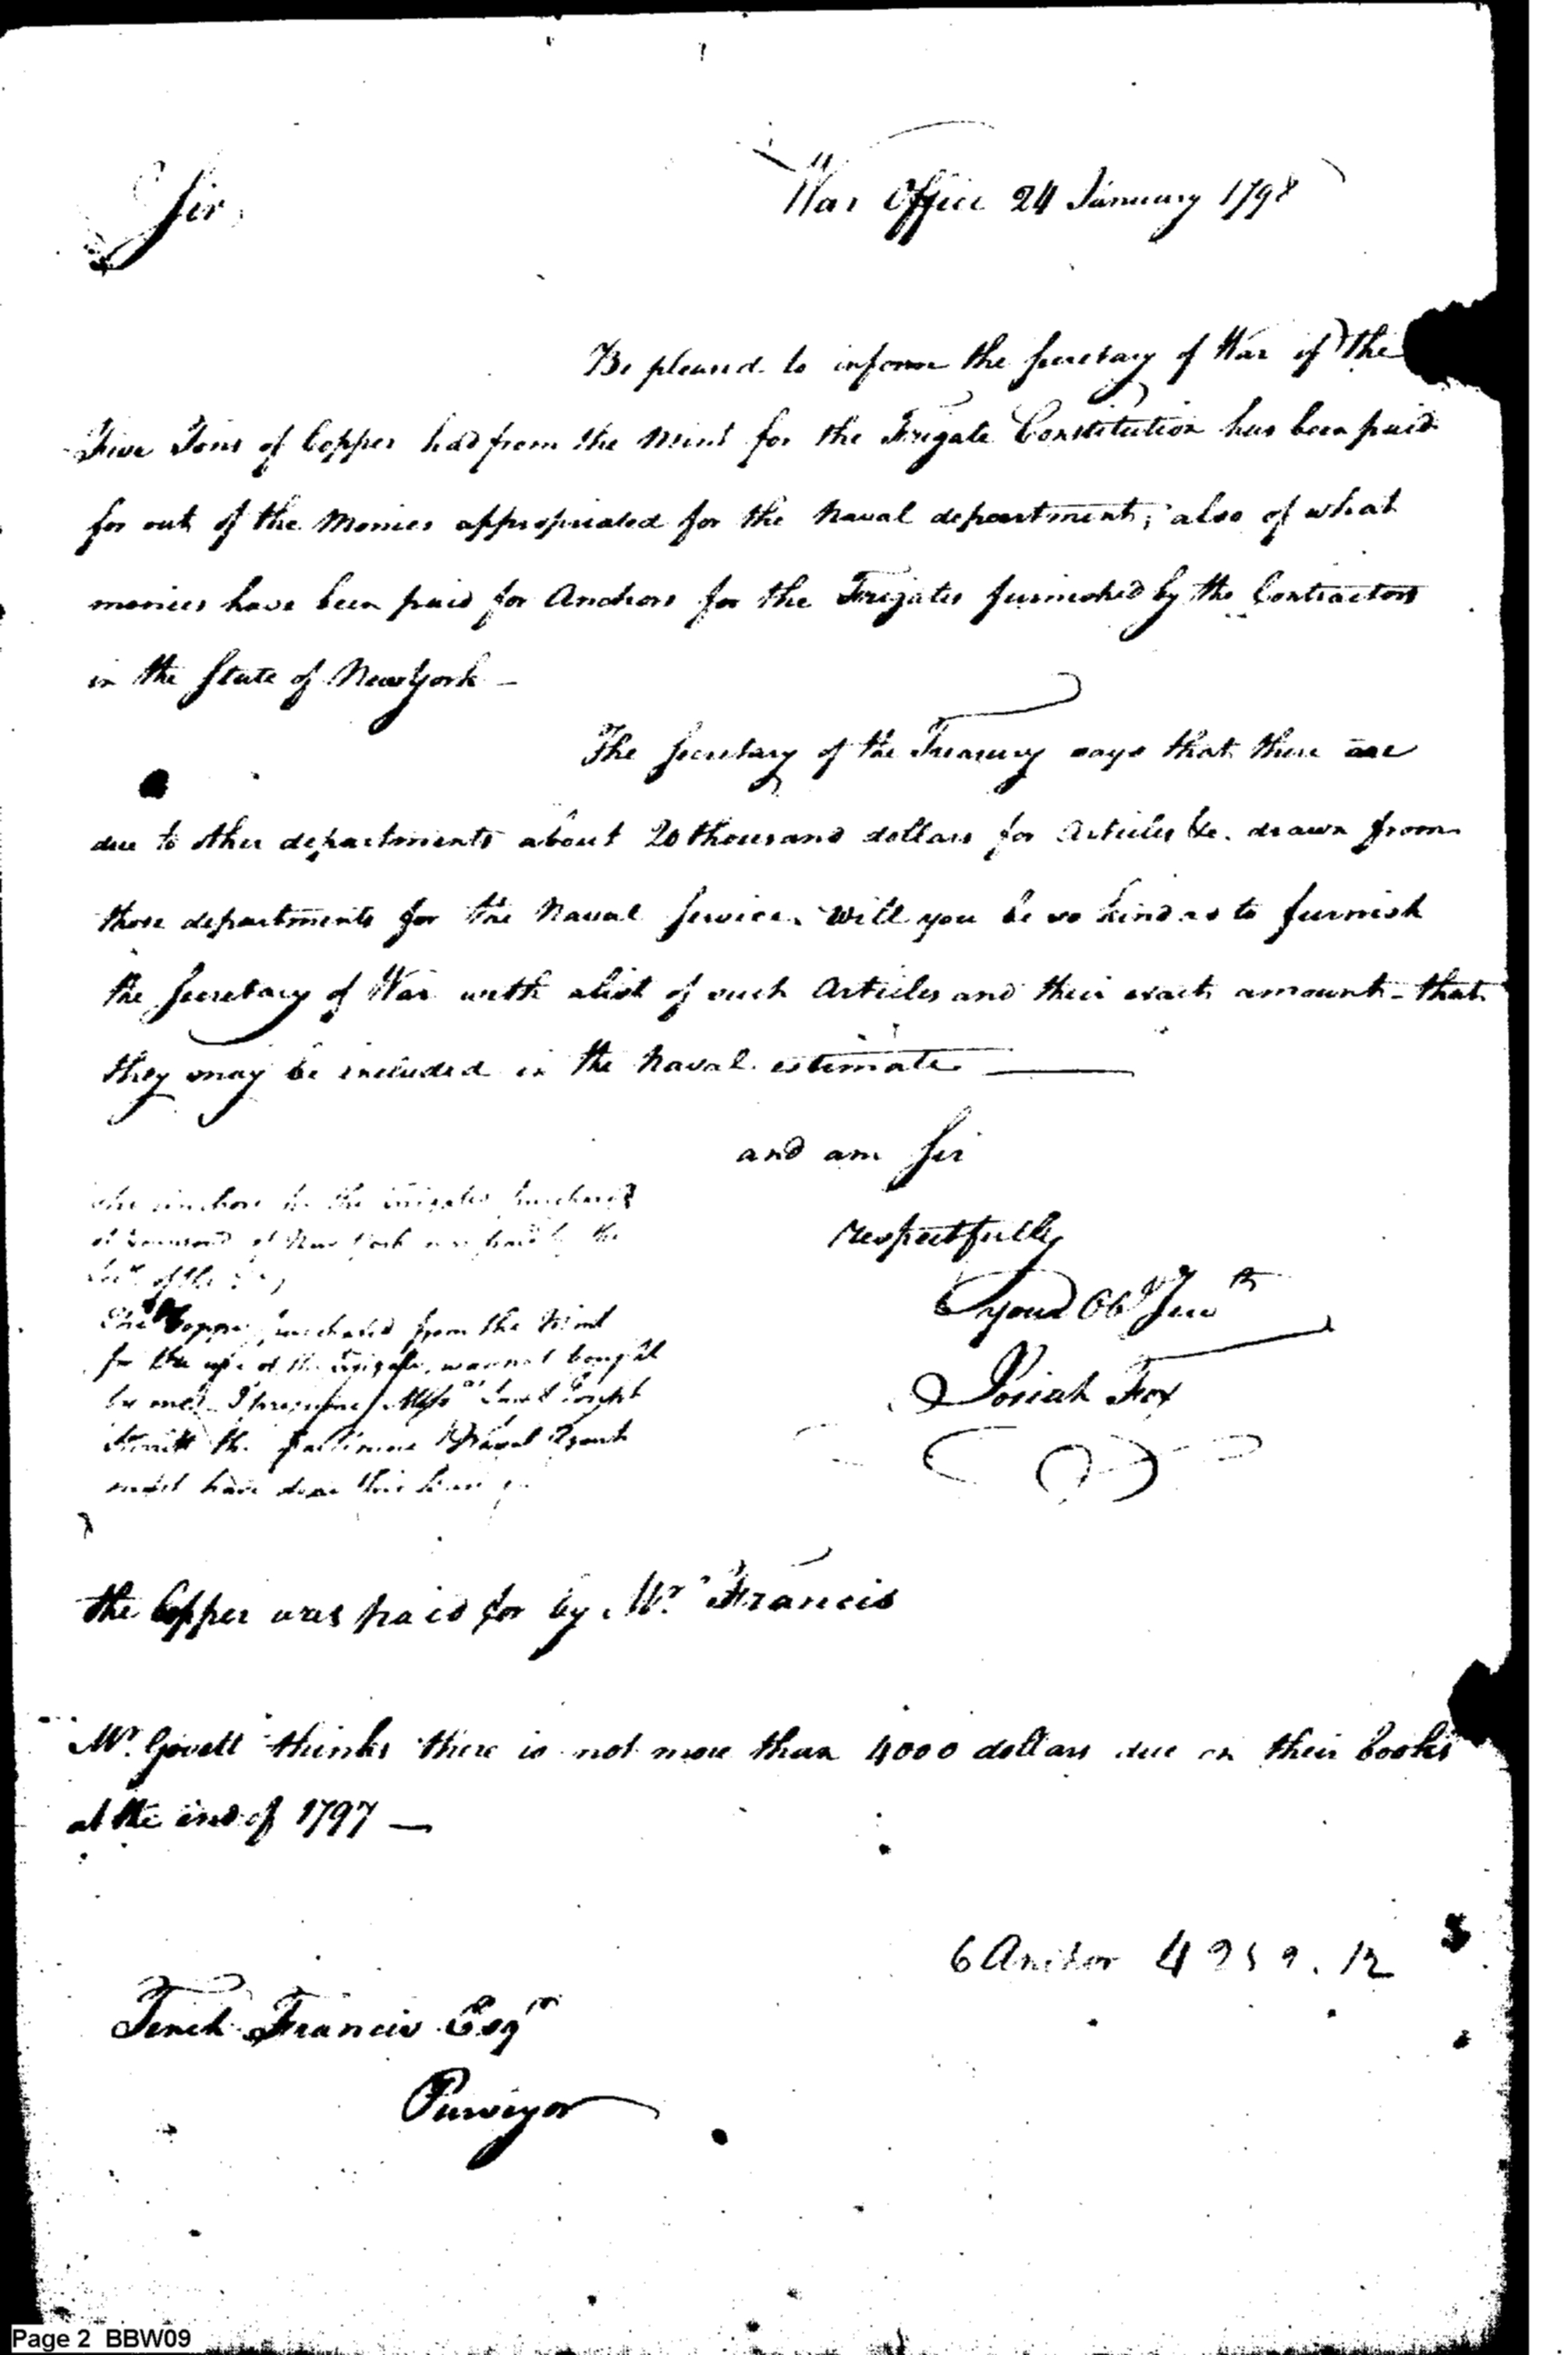 War Office 24 January 1798
Sir,
Be pleased to inform the Secretary of War if the
Five Tons of Copper had from the Mint for the Frigate Constitution has been paid
for out of the Monies appropriated for the Naval department; also of what
monies have been paid for Anchors for the Frigates furnished by the Contractors
in the State of New York –
The Secretary of the Treasury says that there are
due to other departments about 20 thousand dollars for Articles &c. drawn from
those departments for the Naval Service. Will you be so kind as to furnish
the Secretary of War with a list of such Articles and their exact amount – that
they may be included in the Naval estimate
and am Sir
respectfully
your Obt Servt
Josiah Fox
The anchors for the Frigates purchased
at New York are paid by the
of the
The Copper purchased from the Mint
for the use of the Frigate, was not bought
by me. I presume Messrs Saml & Joseph
Sterrett the Baltimore Naval Agents
must have done this
the Copper was paid for by Mr. Francis
Mr. Govett thinks there is not more than 4000 dollars due on their books
at the end of 1797 —
6 Anchor 4959.12
Tench Francis Esqr
Purveyor
Page 2 BBW09